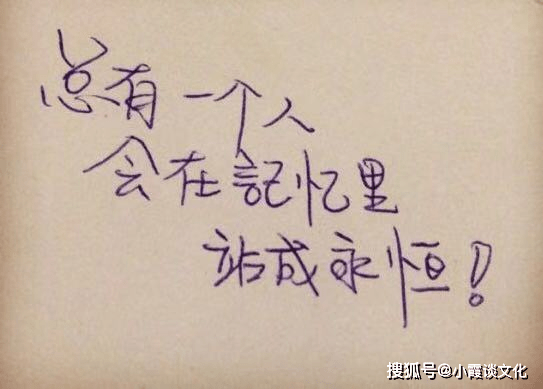 总有一个人
会在記忆里
站成永恒!
搜狐号@小霞谈文化